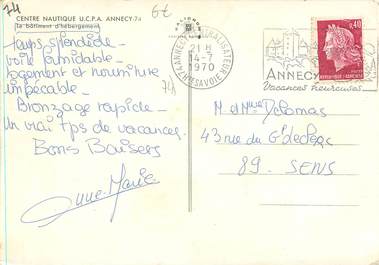 74
6€
CENTRE NAUTIQUE U.C.P.A. ANNECY-74
Le bâtiment d'hébergement
Temps splendide -
voile formidable -
logement et nourriture
impécable -
Bronzage rapide -
Un vrai tps de vacances.
Bons Baisers
Anne-Marie
74 ANNECY
21H
14-7
1970
HTE SAVOIE
ANNECY
Vacances heureuses
0,40
REPUBLIQUE FRANCAISE
M et Mme Delomas
43 rue du Gl de clerc
89. SENS